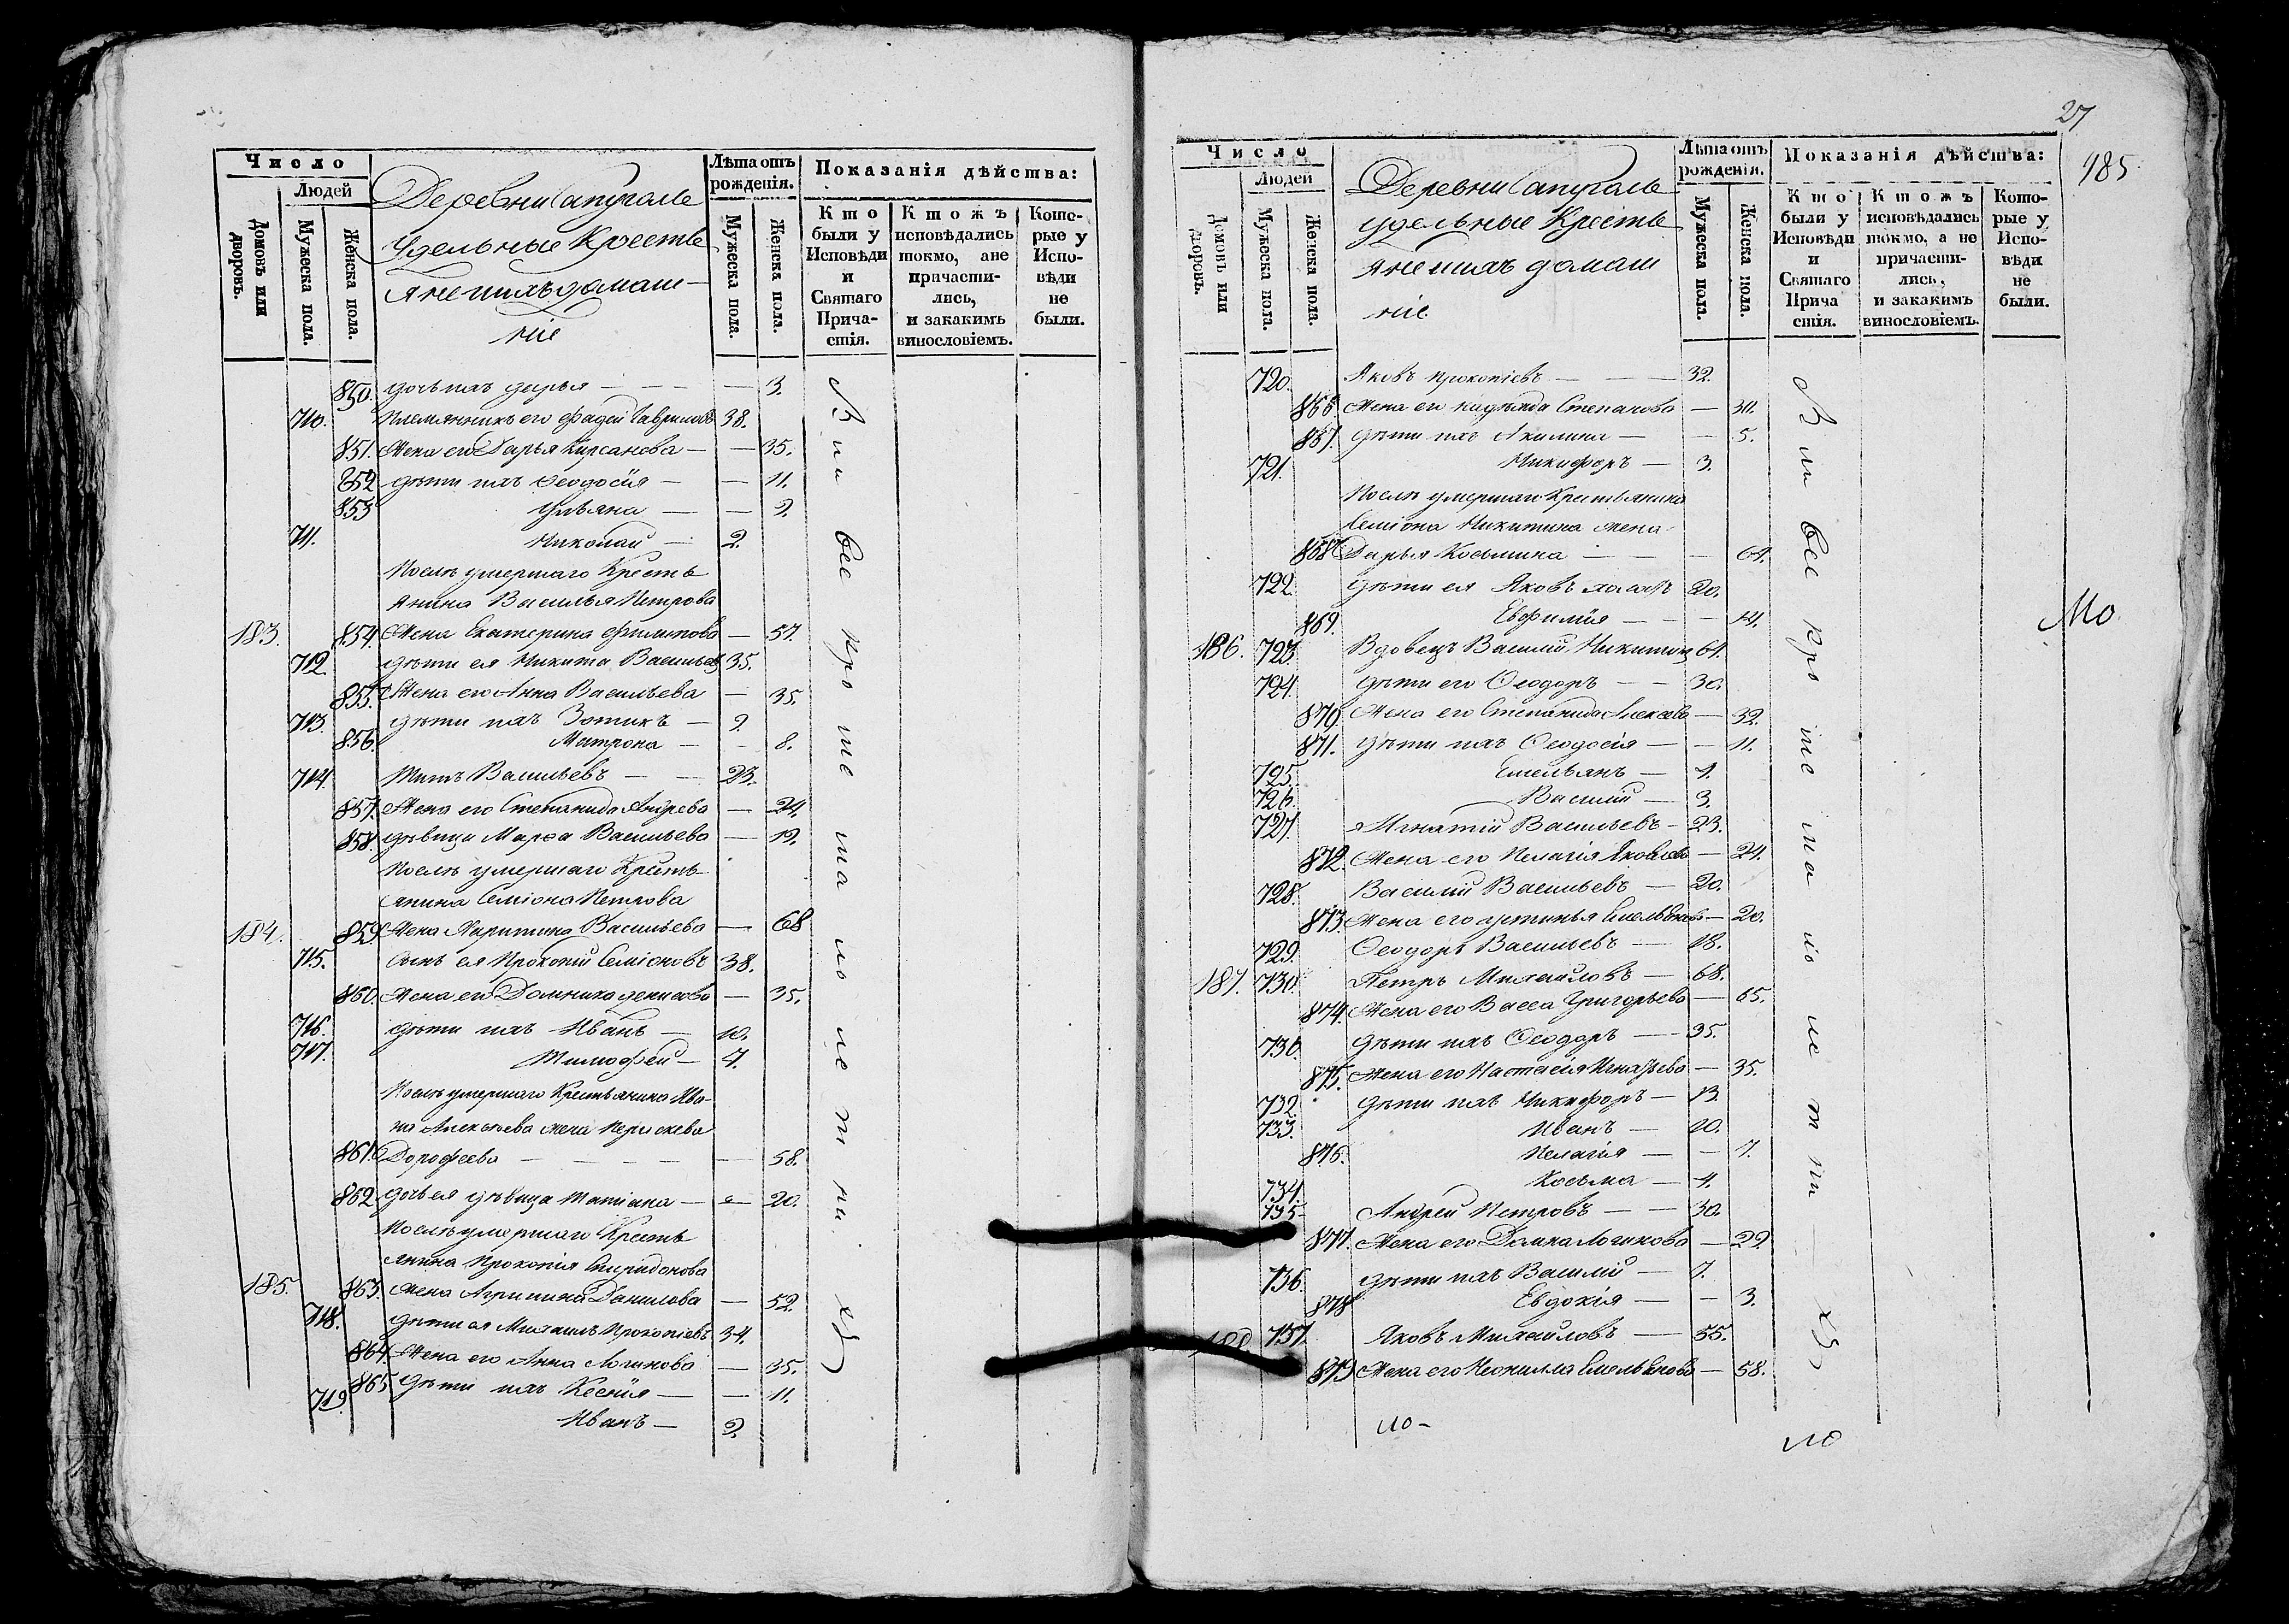 Число
Людей
Домовъ или дворовъ.
Мужеска пола.
Женска пола.
Деревни Сапугаль
Удельные Крестья
яне и ихъ домаш-
ніе
Лѣта отъ рожденія.
Мужеска пола.
Женска пола.
Показанія дѣйства:
Кто были у Исповѣди и Святаго Прича-стія.
Ктожъ исповѣдались токмо, ане причасти-лись, и закакимъ винословіемъ.
Кото-рые у Испо-вѣди не были.
850. дочь ихъ дарья — — 3.
710. Племянникъ его Фадей Гавриловъ 38.
851. Жена его Дарья Кирсанова — — 35.
852 дѣти ихъ Ѳеодосія — — 11.
853 Ульяна — — 9.
711. Николай — 2.
Послѣ умершаго Кресть
янина Василья Петрова
183. 854. Жена Екатерина Филипова — 57.
712. дѣти ея Никита Васильевъ 35.
855. Жена его Анна Васильева — 35.
713. дѣти ихъ Зотикъ — 9.
856. Матрона — — 8.
714. Титъ Васильевъ — — 23.
857. Жена его Степанида Андрева — 24.
858. дѣвица Марѳа Васильева — 19.
Послѣ умершаго Кресть
янина Семіона Петрова
184. 859. Жена Харитина Васильева — 68
715. Сынъ ея Прокопій Семіоновъ 38.
860. Жена его Домника денисова — 35.
716. дѣти ихъ Иванъ — 10.
717. Тимофей — 7.
Послѣ умершаго Крестьянина Ива-
на Алексѣева жена Параскева
861. Дорофеева — — — — 58.
862. дочь ея дѣвица Татіана — — 20.
Послѣ умершаго Кресть
янина Прокопія Спиридонова
185. 863. Жена Агрипина Данилова — 52.
718. дѣти ея Михаилъ Прокопіевъ 34.
864. Жена его Анна Логинова — 35.
865. дѣти ихъ Ксенія — — 11.
719. Иванъ — 9.
27
485
Число
Людей
Домовъ или дворовъ.
Мужеска пола.
Женска пола.
Деревни Сапугаль
удельные Крестья
яне и ихъ домаш
ніе
Лѣта отъ рожденія.
Мужеска пола.
Женска пола.
Показанія дѣйства:
Кто были у Исповѣди и Святаго Прича стія.
Ктожъ исповѣдались токмо, а не причасти-лись, и закакимъ винословіемъ.
Кото-рые у Испо-вѣди не были.
720. Яковъ прокопіевъ — — 32.
866. Жена его надежда Степанова —
867. дѣти ихъ Акилина — — 5.
721. Никифоръ — 3.
Послѣ умершаго Крестьянина
Семіона Никитина жена
868. Дарья Косьмина — — — 64.
722. дѣти ея Яковъ холостъ 20.
869. Евфимія — — —
186. 723. Вдовецъ Василій Никитинъ 61.
724. дѣти его Ѳеодоръ — — 30.
870. Жена его Степанида Алексева — 32.
871. дѣти ихъ Ѳеодосія — — 11.
725. Емельянъ — 4.
726. Василій — 3.
727. Игнатій Васильевъ — 23.
872. Жена его Пелагія Яковлева — 24.
728. Василій Васильевъ — 20.
873. Жена его устинья Емельянова — 20.
729. Ѳеодоръ Васильевъ — 18.
187. 730. Петръ Михаиловъ — 68.
874. Жена его Васса Григорьева — 65.
730. дѣти ихъ Ѳеодоръ — 35.
875. Жена его Настасія Игнатьева — 35.
732. дѣти ихъ Никифоръ — 13.
733. Иванъ — 10.
876. Пелагія — — 7.
734. Косьма — 4.
735. Андрей Петровъ — — 30.
877. Жена его Домна Логинова — 29.
736. дѣти ихъ Василій — 7.
878 Евдокія — — 3.
188 737. Яковъ Михаиловъ — 55.
879 Жена его Неонилла Емельянова — 58.